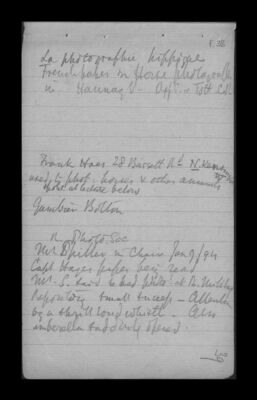 La photographie hippique
French paper on Horse photography
in Hannay
Frank Haes 28 Bassett Rd N. Kensington
used to phot. horses & other animals
spoke at lecture below
Gambier Bolton
R. Photo. Soc
Mr Spiller in Chair Jan 9/94
Capt Hayes paper being read
Mr S. said he had photd at
Repository small success -
by a shrill long whistle - Also
umbrella suddenly opened.